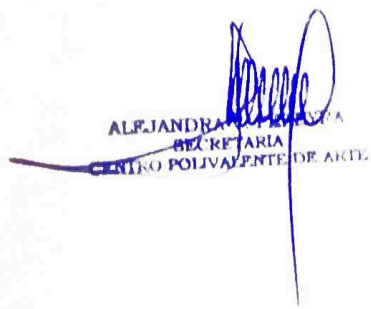 ALEJANDRA
SECRETARIA
CENTRO POLIVALENTE DE ARTE